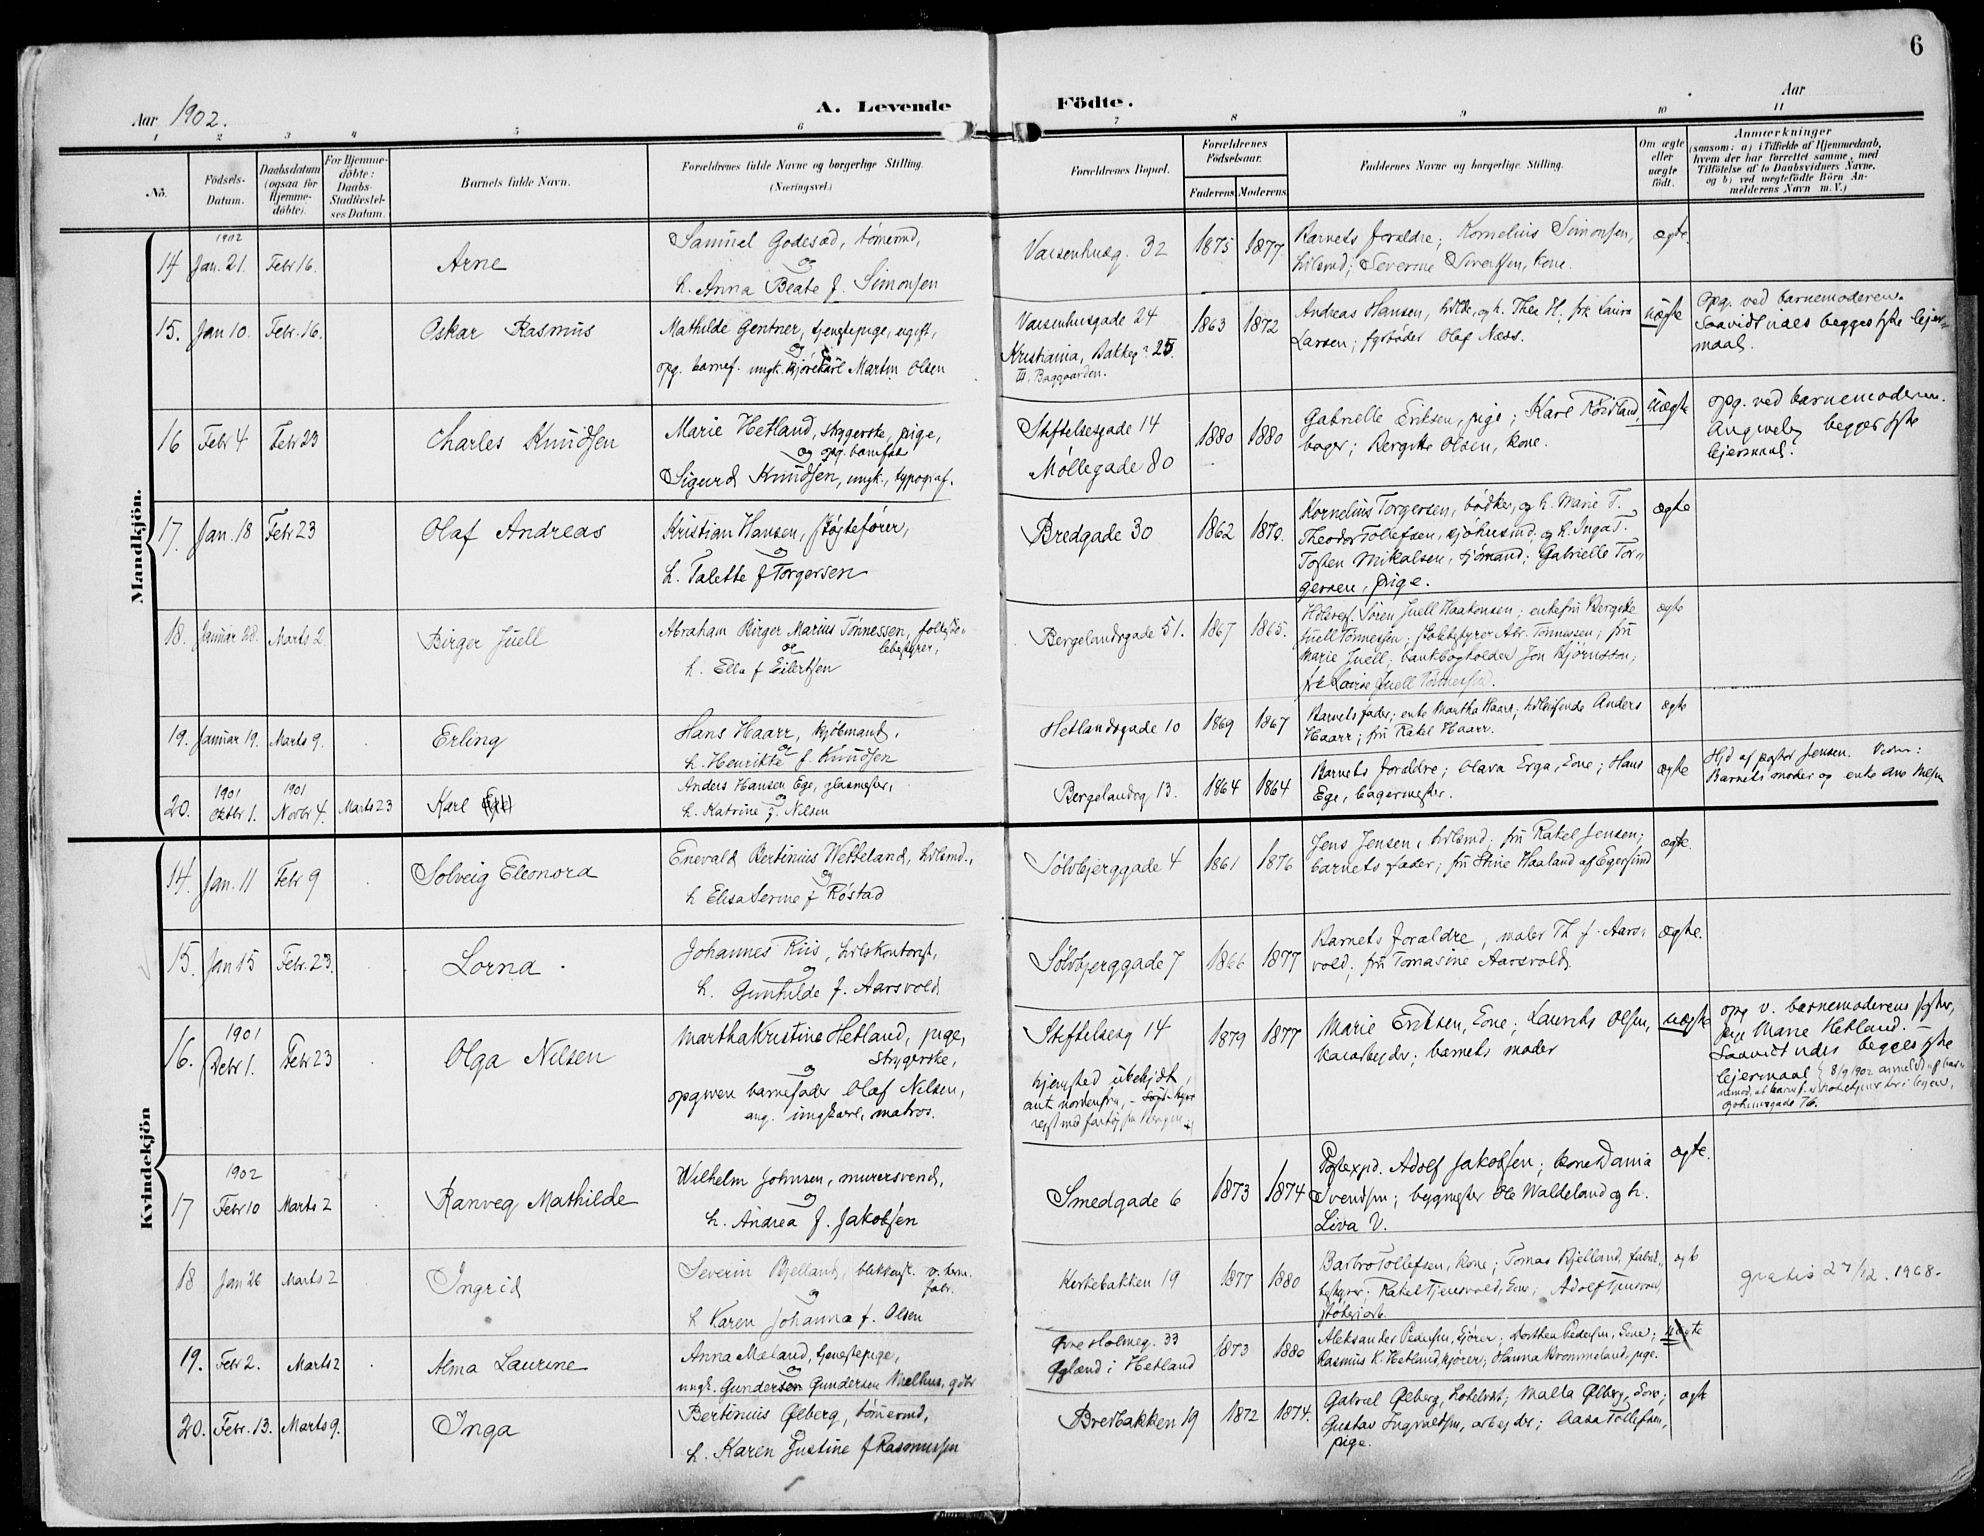 6
Aar 1902.
A. Levende Födte.
Aar
1 2 3 4 5 6 7 8 9 10 11
No.
Födsels-
Datum.
Daabsdatum
(ogsaa for
Hjemme-
döbte).
For Hjemme-
döbte:
Daabs-
Stadfæstel-
ses Datum.
Barnets fulde Navn.
Forældrenes fulde Navne og borgerlige Stilling.
(Næringsvei.)
Forældrenes Bopæl.
Forældrenes
Födselsaar.
Faderens Moderens
Faddernes Navne og borgerlige Stilling.
Om ægte
eller
uægte
födt.
Anmærkninger
(saasom: a) i Tilfælde af Hjemmedaab,
hvem der har forrettet samme, med
Tilföielse af to Daabsvidners Navne,
og b) ved uægtefödte Börn An-
melderens Navn m. V.)
Mandkjön.
1902
14 Jan. 21. Febr 16. Arne
Samuel Godesæd, tømermd,
og
h. Anna Beate f. Simonsen
Vaisenhusg. 32 1875 1877.
Barnets Forældre; Kornelius Simonsen,
hdlsmd; Severine Severtsen, kone.
ægte.
15. Jan 10. Febr. 16. Oskar Rasmus
Mathilde Gentner, tjenestepige, ugift,
og
opg. barnef. ungk. kjørekarl Martin Olsen
Vaisenhusgade 24
Kristiania, Bakkeg. 25.
III. Baggaarden.
1863 1872
Andreas Hansen, og h. Thea H; frk Laura
Larsen; fyrbøder Olaf Næss.
uægte
Opg. ved barnemoderen.
Saavidt vides begges første lejer-
maal.
16 Febr 4 Febr 23 Charles Knudsen
Marie Hetland, strygerske, pige,
og opg. barnfar
Sigurd Knudsen, ungk., typograf.
Stiftelsesgade 14
Møllegade 80
1880 1880
Gabrielle Eriksen, pige; Karl
bager; Bergitte Olsen, kone.
uægte
opg. ved barnemoderen.
Angivelig begges første
lejermaal.
17. Jan. 18 Febr 23 Olaf Andreas
Kristian Hansen, skøjtefører,
og
h. Talette f Torgersen
Bredgade 30 1862 1870.
Kornelius Torgersen, bødker, og h. Marie T.
Theodor Tollefsen, sjøhusmd, og h. Inga T.
Tosten Mikalsen, sjømand; Gabrielle Tor-
gersen, pige.
ægte
18. Januar 28. Marts 2 Birger Juell
Abraham Birger Marius Tønnessen,
bestyrer,
og
h. Ella f Eilertsen
Bergelandsgade 51. 1867 1865.
Søren Juell Haakonsen; enkefru Bergitte
Juell Tønnessen; skolebestyrer Abr. Tønnessen; fru
Marie Juell; bankbogholder Jon Bjørnsson;
frk Lovise Juell Tønnessen.
ægte
19. Januar 19. Marts 9. Erling
Hans Haarr, kjøbmand,
og
h. Henrikke f. Knudsen
Hetlandsgade 10 1869 1867
Barnets fader; enke Martha Haarr; Anders
Haarr; fru Rakel Haarr.
ægte
1901 1901
20. Oktbr 1. Novbr 4. Marts 23 Karl
Anders Hansen Ege, glasmester,
og
h. Katrine f. Nilsen
Bergelandsg 13. 1864 1864
Barnets Forældre; Olava Erga, Kone; Hans
Ege, bagermester.
ægte
Hjd af pastor Jensen. Vidner:
Barnets moder og enke Ane Nilsen
Kvindekjön
14. Jan. 11 Febr 9 Solveig Eleonora
Enevald Bertinius Wetteland, hdlsmd.,
og
h Elisa Serine f Røstad
Sølvbjerggade 4 1861 1876
Jens Jensen, hdlsmd; fru Rakel Jensen;
barnets fader; fru Stine Haaland af Egersund
ægte.
15. Jan 15 Febr. 23. Lorna
Johannes Riis, hdlskontorist,
og
h. Gunhilde f. Aarsvold
Sølvbjerggade 7 1866 1877
Barnets forældre, maler Th. f. Aars-
vold; fru Tomasine Aarsvold.
ægte.
1901
16. Debr 1. Febr 23 Olga Nilsen
Martha Kristine Hetland, pige,
strygerske,
og
opgiven barnefader Olaf Nilsen,
ang. ungkarl, matros.
Stiftelsesg 14
hjemsted ubekjdt,
ant. nordenfra,
rejst med fartøj fra Bergen
1879 1877
Marie Eriksen, Kone; Laurits Olsen,
havarbejder; barnets moder
uægte
opg v. barnemoderens søster,
pige Marie Hetland.
Saavidt vides begges første
lejermaal 8/9 1902
17 1902 Febr 10 Marts 2 Ranveg Mathilde
Wilhelm Johnsen, murersvend,
og
h. Andrea f. Jakobsen
Smedgade 6 1873 1874
Postexpd. Adolf Jakobsen; kone Dania
Svendsen; bygmester Ole Walleland og h.
Liva V.
ægte.
18 Jan 26 Marts 2 Ingrid
Severin Bjelland, blikkensl. v. herm.
fabr.
og
h Karen Johanna f. Olsen
Kirkebakken 19 1877 1880
Barbro Tollefsen, kone; Tomas Kjelland, fabrik-
bestyrer; Rakel Tjensvold, Kone; Adolf Tjensvold,
støberiarb.
ægte
gratis 27/12. 1968.
19. Febr 2. Marts 2 Alma Laurine
Anna Mæland, tjenestepige,
og
ungk. Gundersen Gundersen Mælhus, gdbr
Øvre Holmeg. 33
Øglænd i Hetland
1873 1880
Aleksander Pedersen, kjører; Dorthea Pedersen, Kone;
Rasmus K. Hetland, kjører; Hanna Krommeland, pige.
uægte
20. Febr. 13. Marts 9. Inga
Bertinius Ølberg, tømermd,
og
h. Karen Justine f Rasmussen
Bredbakken 19 1872 1874.
Gabriel Ølberg, hotelvært; Malla Ølberg, Kone;
Gustav Ingvaldsen, arbejder; Aasa Tollefsen,
pige.
ægte